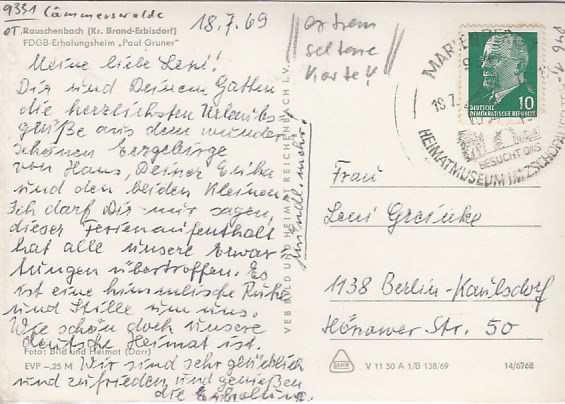 9331 Cämmerswalde
OT. Rauschenbach (Kr. Brand-Erbisdorf)
FDGB-Erholungsheim „Paul Gruner"
18.7.69
extrem
seltene
Karte!!
Meine liebe Leni!
Dir und Deinem Gatten
die herzlichsten Urlaubs-
grüße aus dem wunder-
schönen Erzgebirge
von Hans, Deiner Erika
und den beiden Kleinen.
Ich darf Dir nur sagen,
dieser Ferienaufenthalt
hat alle unsere Erwar
tungen übertroffen. Es
ist eine himmlische Ruhe
und Stille um uns.
Wie schön doch unsere
deutsche Heimat ist.
Foto: Bild und Heimat (Darr)
Wir sind sehr glücklich
EVP -,25 M
und zufrieden und genießen
die Erholung.
Mündl. mehr.
VEB BILD UND HEIMAT REICHENBACH i. V.
DEUTSCHE
DEMOKRATISCHE REPUBLIK
10
18.7.
BESUCHT DAS
HEIMATMUSEUM IN ZSCHOPAU
Frau
Leni Greinke
1138 Berlin-Kaulsdorf
Hönower Str. 50
V 11 50 A 1/B 138/69
14/6768